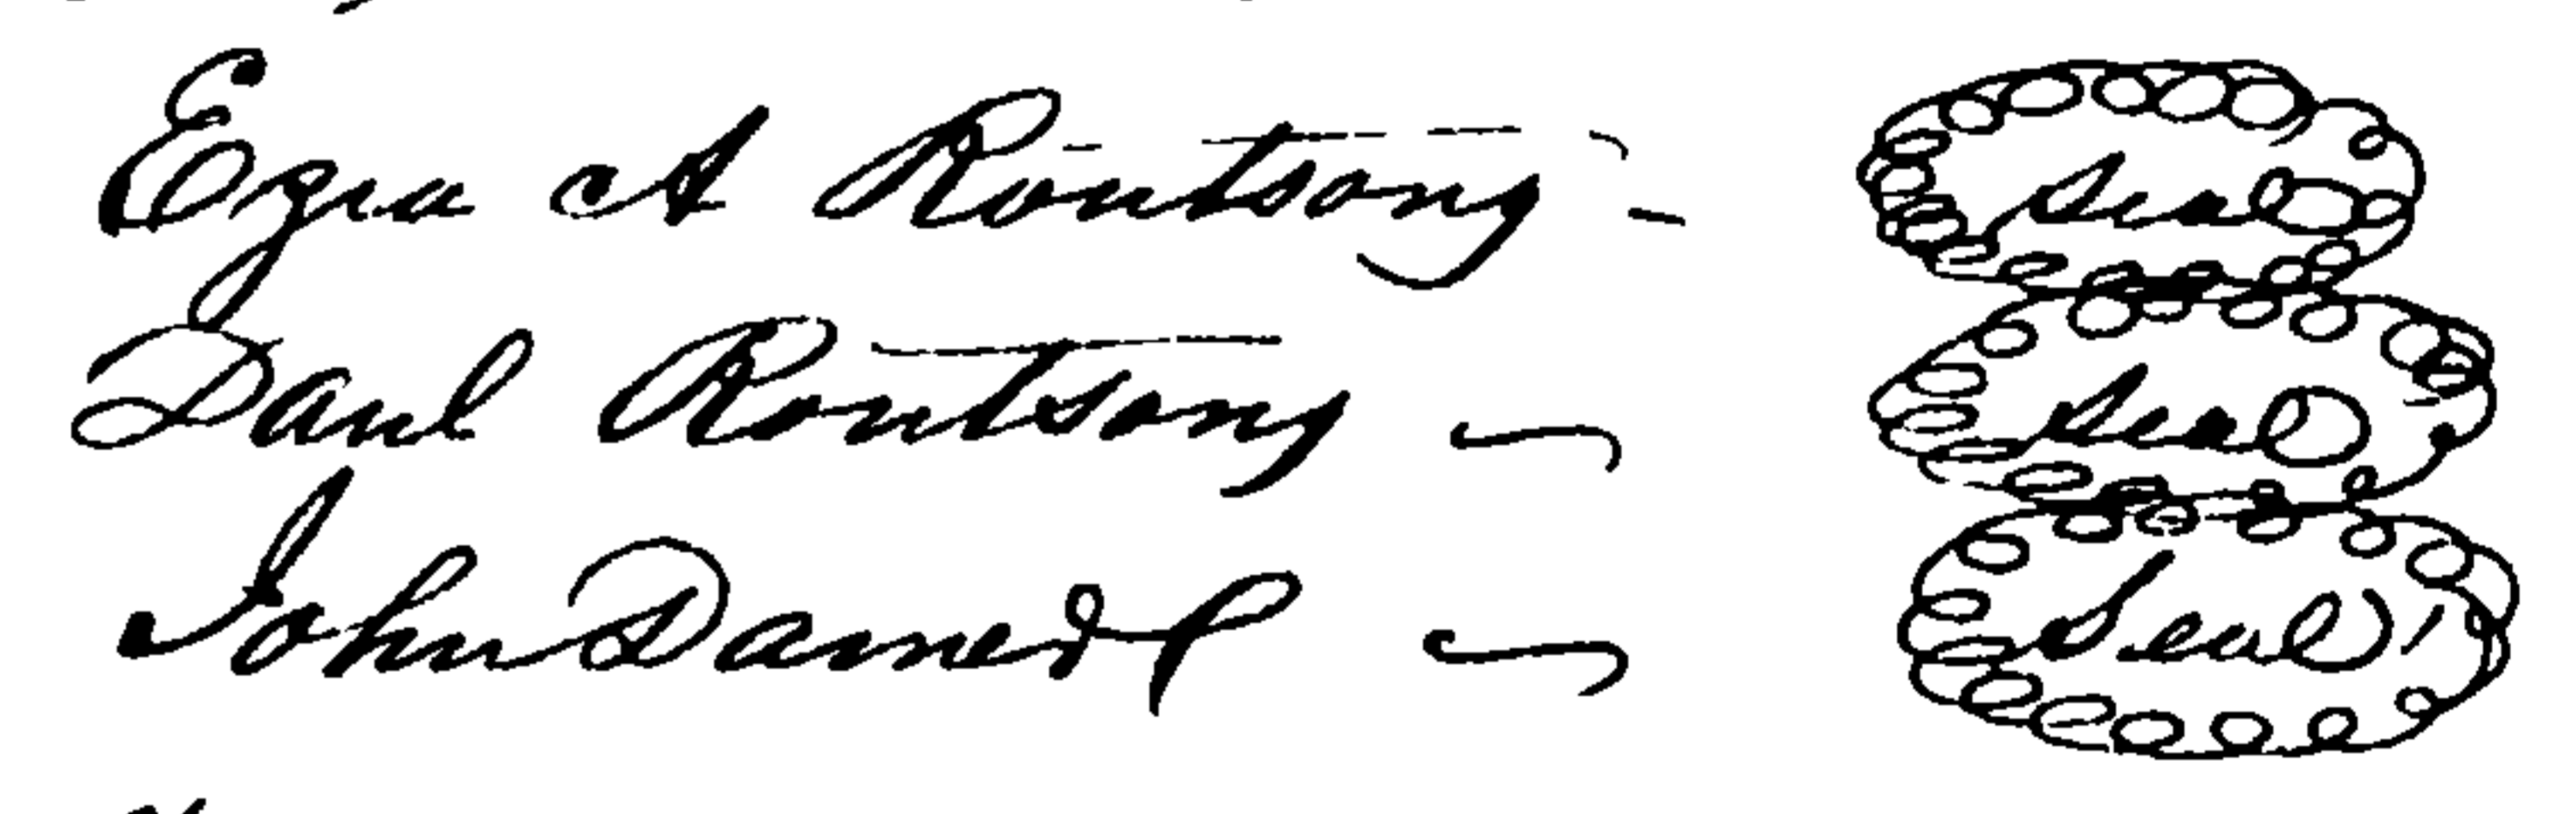 Ezra A Routsong - Seal
Danl Routsong - Seal
John - Seal